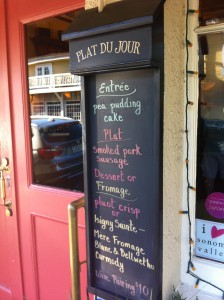 PLAT DU JOUR
Entrée
pea pudding
cake
Plat
smoked pork
sausage
Dessert or
Fromage
pluot crisp
or
Isigny Sainte-
Mere Fromage
Blanc & Bellwether
Carmody
Wine Pairing $10
i
sonoma
valley